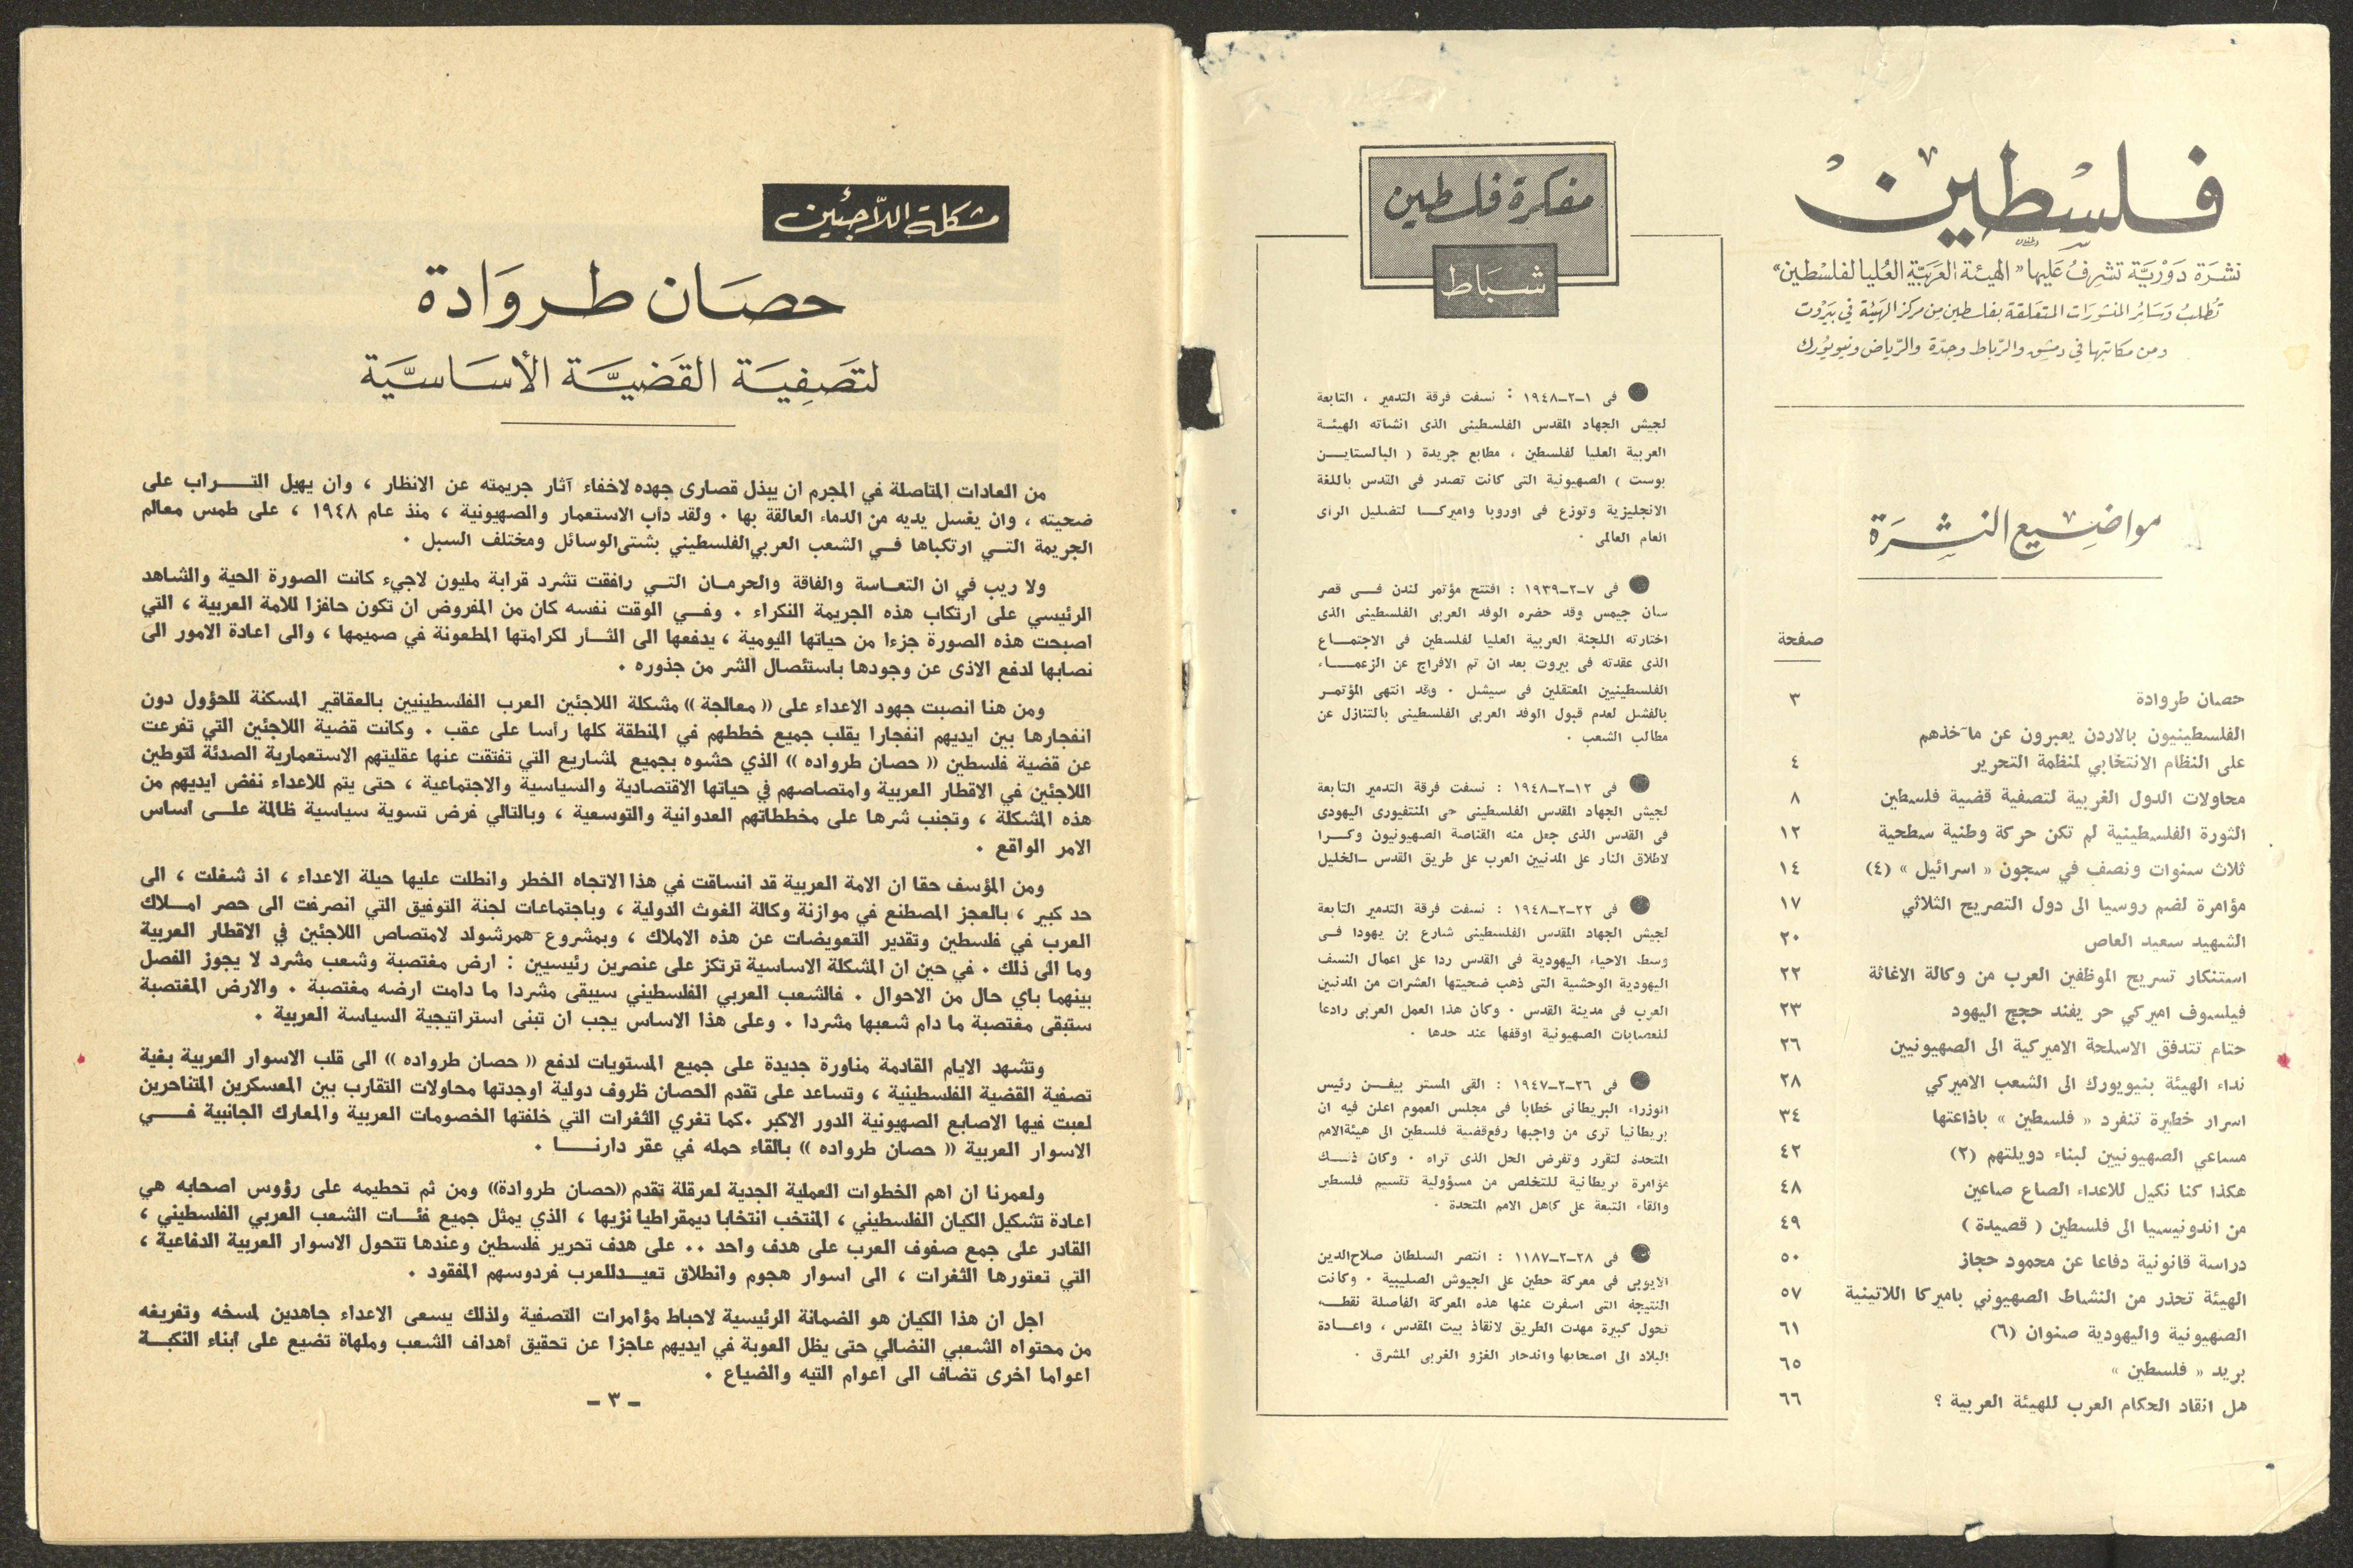 فلسطين
نشرة دورية تشرف عليها "الهيئة العربية العليا لفلسطين"
تطلب وسائر المنشورات المتعلقة بفلسطين من مركز الهيئة في بيروت
ومن مكاتبها في دمشق والرباط وجدة والرياض ونيويورك
مواضيع النشرة
صفحة
حصان طروادة ٣
الفلسطينيون بالاردن يعبرون عن مآخذهم
على النظام الانتخابي لمنظمة التحرير ٤
محاولات الدول الغربية لتصفية قضية فلسطين ٨
الثورة الفلسطينية لم تكن حركة وطنية سطحية ١٢
ثلاث سنوات ونصف في سجون « اسرائيل » (٤) ١٤
مؤامرة لضم روسيا الى دول التصريح الثلاثي ١٧
الشهيد سعيد العاص ٢٠
استنكار تسريح الموظفين العرب من وكالة الاغاثة ٢٢
فيلسوف اميركي حر يفند حجج اليهود ٢٣
حتام تتدفق الاسلحة الاميركية الى الصهيونيين ٢٦
نداء الهيئة بنيويورك الى الشعب الاميركي ٢٨
اسرار خطيرة تنفرد « فلسطين » باذاعتها ٣٤
مساعي الصهيونيين لبناء دويلتهم (٢) ٤٢
هكذا كنا نكيل للاعداء الصاع صاعين ٤٨
من اندونيسيا الى فلسطين ( قصيدة ) ٤٩
دراسة قانونية دفاعا عن محمود حجاز ٥٠
الهيئة تحذر من النشاط الصهيوني باميركا اللاتينية ٥٧
الصهيونية واليهودية صنوان (٦) ٦١
بريد « فلسطين » ٦٥
هل انقاد الحكام العرب للهيئة العربية ؟ ٦٦
مفكرة فلسطين
شباط
● فى ١-٢-١٩٤٨ : نسفت فرقة التدمير ، التابعة
لجيش الجهاد المقدس الفلسطينى الذى انشأته الهيئة
العربية العليا لفلسطين ، مطابع جريدة ( البالستاين
بوست ) الصهيونية التى كانت تصدر فى القدس باللغة
الانجليزية وتوزع فى اوروبا واميركا لتضليل الراى
العام العالمى .
● فى ٧-٢-١٩٣٩ : افتتح مؤتمر لندن فى قصر
سان جيمس وقد حضره الوفد العربى الفلسطينى الذى
اختارته اللجنة العربية العليا لفلسطين فى الاجتماع
الذى عقدته فى بيروت بعد ان تم الافراج عن الزعماء
الفلسطينيين المعتقلين فى سيشل . وقد انتهى المؤتمر
بالفشل لعدم قبول الوفد العربى الفلسطينى بالتنازل عن
مطالب الشعب .
● فى ١٢-٢-١٩٤٨ : نسفت فرقة التدمير التابعة
لجيش الجهاد المقدس الفلسطينى حى المنتفيورى اليهودى
فى القدس الذى جعل منه القناصة الصهيونيون وكرا
لاطلاق النار على المدنيين العرب على طريق القدس -الخليل
● فى ٢٢-٢-١٩٤٨ : نسفت فرقة التدمير التابعة
لجيش الجهاد المقدس الفلسطينى شارع بن يهودا فى
وسط الاحياء اليهودية فى القدس ردا على اعمال النسف
اليهودية الوحشية التى ذهب ضحيتها العشرات من المدنيين
العرب فى مدينة القدس . وكان هذا العمل العربى رادعا
للعصابات الصهيونية اوقفها عند حدها .
● فى ٢٦-٢-١٩٤٧ : القى المستر بيفن رئيس
الوزراء البريطانى خطابا فى مجلس العموم اعلن فيه ان
بريطانيا ترى من واجبها رفع قضية فلسطين الى هيئة الامم
المتحدة لتقرر وتفرض الحل الذى تراه . وكان ذلك
مؤامرة بريطانية للتخلص من مسؤولية تقسيم فلسطين
والقاء التبعة على كاهل الامم المتحدة .
● فى ٢٨-٢-١١٨٧ : انتصر السلطان صلاح الدين
الايوبى فى معركة حطين على الجيوش الصليبية . وكانت
النتيجة التى اسفرت عنها هذه المعركة الفاصلة نقطة
تحول كبيرة مهدت الطريق لانقاذ بيت المقدس ، واعادة
البلاد الى اصحابها واندحار الغزو الغربى للمشرق .
مشكلة اللاجئين
حصان طروادة
لتصفية القضية الأساسية
من العادات المتاصلة في المجرم ان يبذل قصارى جهده لاخفاء آثار جريمته عن الانظار ، وان يهيل التراب على
ضحيته ، وان يغسل يديه من الدماء العالقة بها . ولقد دأب الاستعمار والصهيونية ، منذ عام ١٩٤٨ ، على طمس معالم
الجريمة التي ارتكباها في الشعب العربي الفلسطيني بشتى الوسائل ومختلف السبل .
ولا ريب في ان التعاسة والفاقة والحرمان التي رافقت تشرد قرابة مليون لاجيء كانت الصورة الحية والشاهد
الرئيسي على ارتكاب هذه الجريمة النكراء . وفي الوقت نفسه كان من المفروض ان تكون حافزا للامة العربية ، التي
اصبحت هذه الصورة جزءا من حياتها اليومية ، يدفعها الى الثأر لكرامتها المطعونة في صميمها ، والى اعادة الامور الى
نصابها لدفع الاذى عن وجودها باستئصال الشر من جذوره .
ومن هنا انصبت جهود الاعداء على (( معالجة )) مشكلة اللاجئين العرب الفلسطينيين بالعقاقير المسكنة للحؤول دون
انفجارها بين ايديهم انفجارا يقلب جميع خططهم في المنطقة كلها رأسا على عقب . وكانت قضية اللاجئين التي تفرعت
عن قضية فلسطين (( حصان طرواده )) الذي حشوه بجميع لمشاريع التي تفتقت عنها عقليتهم الاستعمارية الصدئة لتوطين
اللاجئين في الاقطار العربية وامتصاصهم في حياتها الاقتصادية والسياسية والاجتماعية ، حتى يتم للاعداء نفض ايديهم من
هذه المشكلة ، وتجنب شرها على مخططاتهم العدوانية والتوسعية ، وبالتالي فرض تسوية سياسية ظالمة على اساس
الامر الواقع .
ومن المؤسف حقا ان الامة العربية قد انساقت في هذا الاتجاه الخطر وانطلت عليها حيلة الاعداء ، اذ شغلت ، الى
حد كبير ، بالعجز المصطنع في موازنة وكالة الغوث الدولية ، وباجتماعات لجنة التوفيق التي انصرفت الى حصر املاك
العرب في فلسطين وتقدير التعويضات عن هذه الاملاك ، وبمشروع همرشولد لامتصاص اللاجئين في الاقطار العربية
وما الى ذلك . في حين ان المشكلة الاساسية ترتكز على عنصرين رئيسيين : ارض مغتصبة وشعب مشرد لا يجوز الفصل
بينهما باي حال من الاحوال . فالشعب العربي الفلسطيني سيبقى مشردا ما دامت ارضه مغتصبة . والارض المغتصبة
ستبقى مغتصبة ما دام شعبها مشردا . وعلى هذا الاساس يجب ان تبنى استراتيجية السياسة العربية .
وتشهد الايام القادمة مناورة جديدة على جميع المستويات لدفع (( حصان طرواده )) الى قلب الاسوار العربية بغية
تصفية القضية الفلسطينية ، وتساعد على تقدم الحصان ظروف دولية اوجدتها محاولات التقارب بين المعسكرين المتناحرين
لعبت فيها الاصابع الصهيونية الدور الاكبر . كما تغري الثغرات التي خلفتها الخصومات العربية والمعارك الجانبية في
الاسوار العربية (( حصان طرواده )) بالقاء حمله في عقر دارنا .
ولعمرنا ان اهم الخطوات العملية الجدية لعرقلة تقدم ((حصان طروادة)) ومن ثم تحطيمه على رؤوس اصحابه هي
اعادة تشكيل الكيان الفلسطيني ، المنتخب انتخابا ديمقراطيا نزيها ، الذي يمثل جميع فئات الشعب العربي الفلسطيني ،
القادر على جمع صفوف العرب على هدف واحد .. على هدف تحرير فلسطين وعندها تتحول الاسوار العربية الدفاعية ،
التي تعتورها الثغرات ، الى اسوار هجوم وانطلاق تعيد للعرب فردوسهم المفقود .
اجل ان هذا الكيان هو الضمانة الرئيسية لاحباط مؤامرات التصفية ولذلك يسعى الاعداء جاهدين لمسخه وتفريغه
من محتواه الشعبي النضالي حتى يظل العوبة في ايديهم عاجزا عن تحقيق أهداف الشعب وملهاة تضيع على ابناء النكبة
اعواما اخرى تضاف الى اعوام التيه والضياع .
- ٣ -